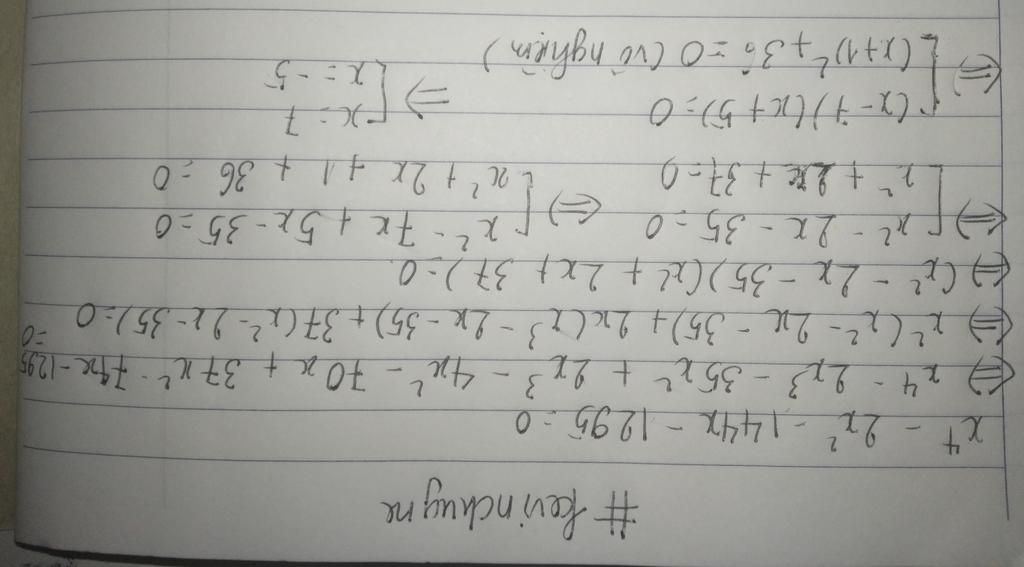 #kevinchugne
x⁴ - 2x² - 144x - 1295 = 0
⇔ x⁴ - 2x³ - 35x² + 2x³ - 4x² - 70x + 37x² - 74x - 1295 = 0
⇔ x²(x² - 2x - 35) + 2x(x³ - 2x - 35) + 37(x² - 2x - 35) = 0
⇔ (x² - 2x - 35)(x² + 2x + 37) = 0
⇔ [ x² - 2x - 35 = 0 ⇔ [ x² - 7x + 5x - 35 = 0
x² + 2x + 37 = 0 x² + 2x + 1 + 36 = 0
⇔ [ (x - 7)(x + 5) = 0 ⇒ [ x = 7
(x + 1)² + 36 = 0 (vô nghiệm) x = -5